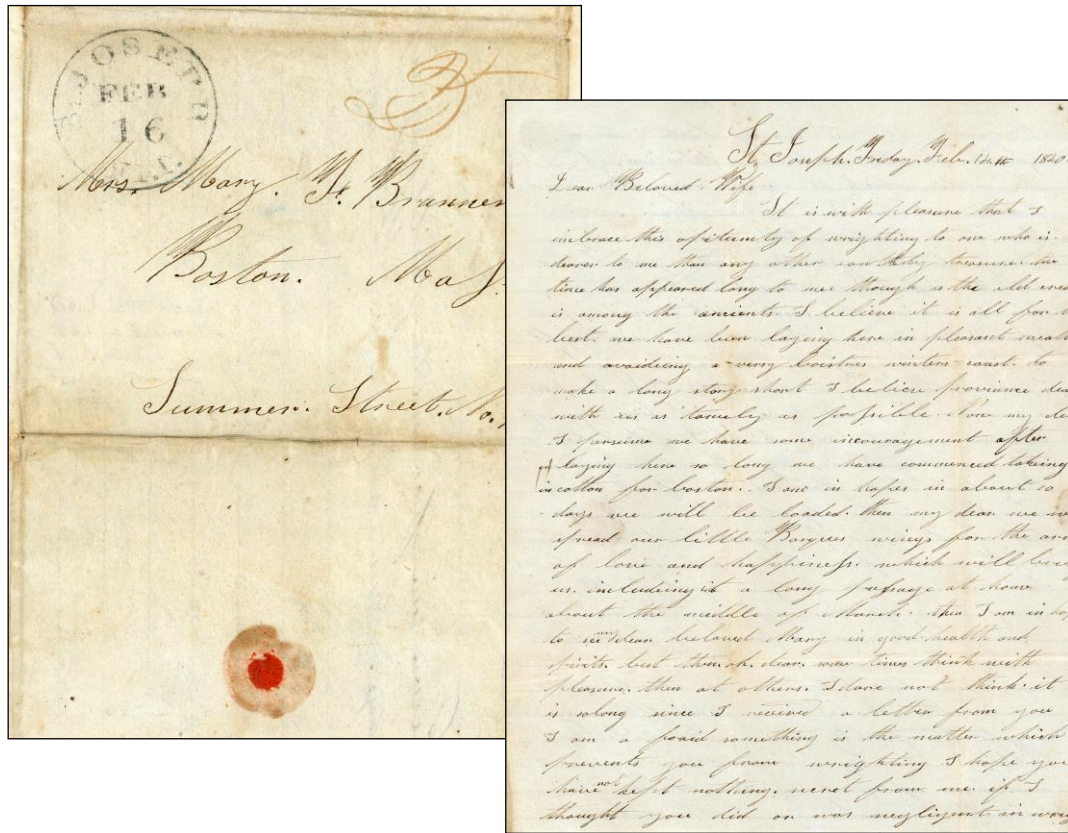 JOSEPH
FEB
16
Mrs. Mary. F. Brannen
Boston. Mass.
Summer. Street. No.
St. Joseph. Friday. Feb. 14th 1840
Dear Beloved Wife
It is with pleasure that I
imbrace this opitunity of wrighting to one who is
dearer to me than any other earthly treasure. the
time has appeared long to me. though as the old
is among the ancients. I believe it is all for
best. we have been laying here in pleasant
and avoideing a verry boistres winters coast. to
make a long story short I believe proviance
with us is as possible. Now my
I persume we have some incouragement after
laying here so long we have commenced takeing
in cotton for boston. I am in hopes in about 10
days we will be loaded. then my dear we
spread our little Barques wings for the
of love and happiness. which will
us. includeing it a long passage at home
about the middle of March. then I am in
to see my dear beloved Mary in good health and
spirits. but then oh. dear. some times think with
pleasure. then at others. I dare not think. it
is solong since I received a letter from you
I am a fraid something is the matter which
prevents you from wrighting I hope you
have not kept nothing. secret from me. if I
thought you did or was negligent in